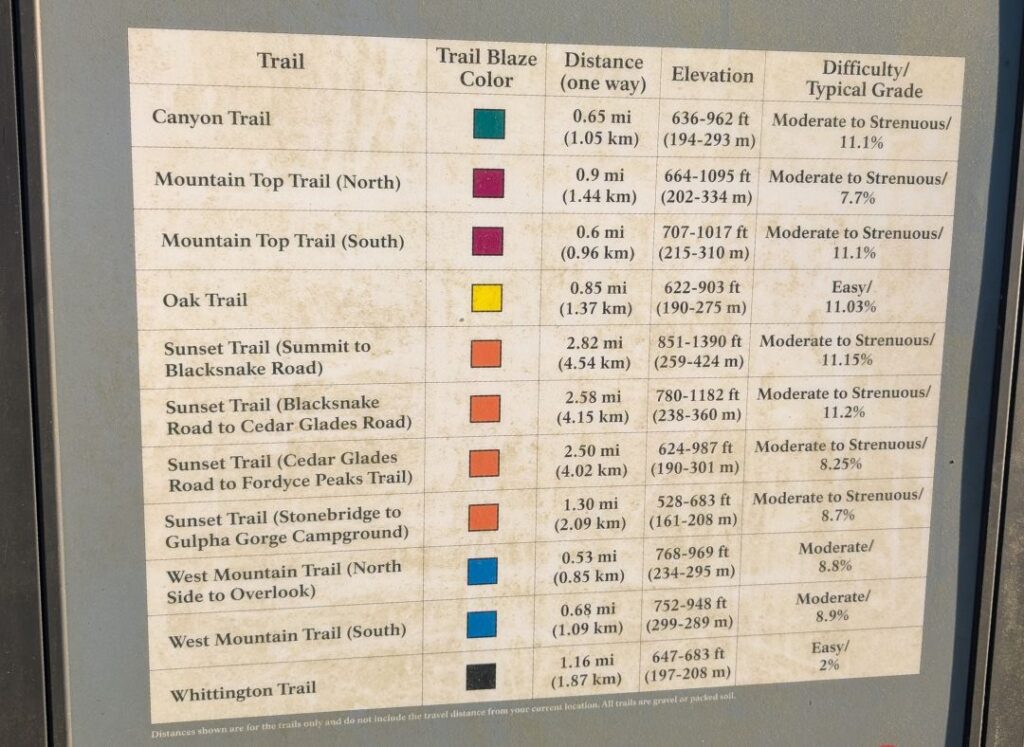 Trail
Trail Blaze
Color
Distance
(one way)
Elevation
Difficulty/
Typical Grade
Canyon Trail
0.65 mi
(1.05 km)
636-962 ft
(194-293 m)
Moderate to Strenuous/
11.1%
Mountain Top Trail (North)
0.9 mi
(1.44 km)
664-1095 ft
(202-334 m)
Moderate to Strenuous/
7.7%
Mountain Top Trail (South)
0.6 mi
(0.96 km)
707-1017 ft
(215-310 m)
Moderate to Strenuous/
11.1%
Oak Trail
0.85 mi
(1.37 km)
622-903 ft
(190-275 m)
Easy/
11.03%
Sunset Trail (Summit to
Blacksnake Road)
2.82 mi
(4.54 km)
851-1390 ft
(259-424 m)
Moderate to Strenuous/
11.15%
Sunset Trail (Blacksnake
Road to Cedar Glades Road)
2.58 mi
(4.15 km)
780-1182 ft
(238-360 m)
Moderate to Strenuous/
11.2%
Sunset Trail (Cedar Glades
Road to Fordyce Peaks Trail)
2.50 mi
(4.02 km)
624-987 ft
(190-301 m)
Moderate to Strenuous/
8.25%
Sunset Trail (Stonebridge to
Gulpha Gorge Campground)
1.30 mi
(2.09 km)
528-683 ft
(161-208 m)
Moderate to Strenuous/
8.7%
West Mountain Trail (North
Side to Overlook)
0.53 mi
(0.85 km)
768-969 ft
(234-295 m)
Moderate/
8.8%
West Mountain Trail (South)
0.68 mi
(1.09 km)
752-948 ft
(299-289 m)
Moderate/
8.9%
Whittington Trail
1.16 mi
(1.87 km)
647-683 ft
(197-208 m)
Easy/
2%
Distances shown are for the trails only and do not include the travel distance from your current location. All trails are gravel or packed soil.